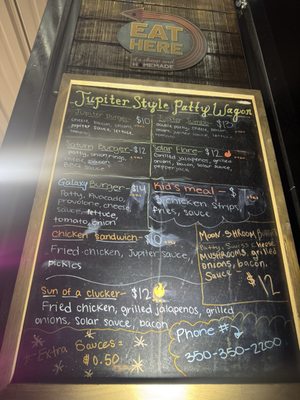 EAT
HERE
HOMEMADE
Jupiter Style Patty Wagon
Jupiter Burger - $10
cheese, bacon, onions,
jupiter sauce, lettuce
double patty, cheese,
bacon, onions, jupiter
sauce, lettuce
Saturn Burger - $12
patty, onion rings,
cheese, bacon
BBQ sauce
Solar Flare - $12
Grilled jalapenos, grilled
onions, bacon, solar
sauce, pepper
jack cheese
Galaxy Burger - $14
Patty, Avocado,
provolone cheese
sauce, lettuce,
tomato, onion
Kid's meal - $
chicken strips,
fries, sauce
Chicken Sandwich -
Fried chicken, Jupiter sauce,
pickles
Moon Shroom Burger
Patty, Swiss cheese
MUSHROOMS, grilled
onions, bacon,
sauce
$12
Sun of a clucker - $12
Fried chicken, grilled jalapenos, grilled
onions, Solar sauce, bacon
Extra Sauces =
$0.50
Phone #
350-350-2200